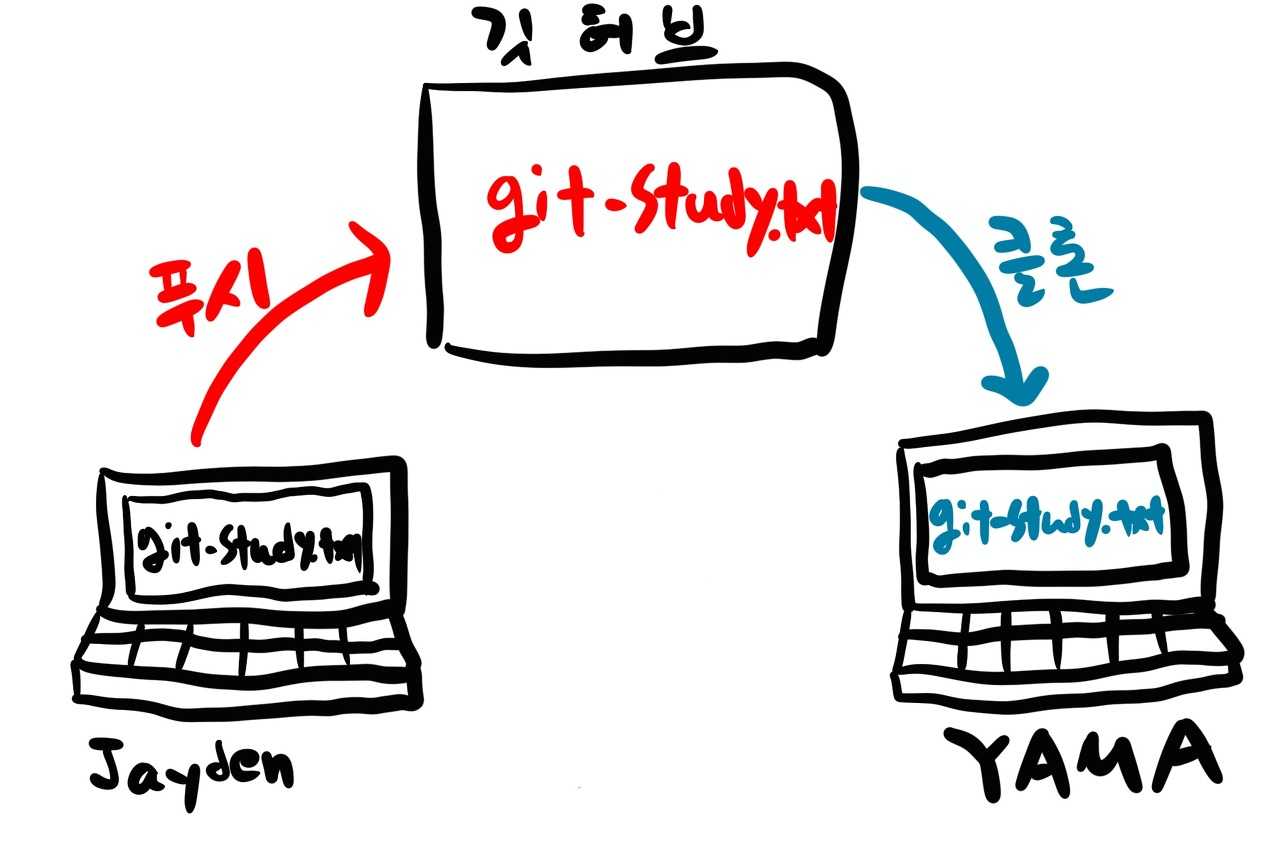 깃 허브
git-study.txt
푸시
클론
git-study.txt
git-study.txt
Jayden
YAMA